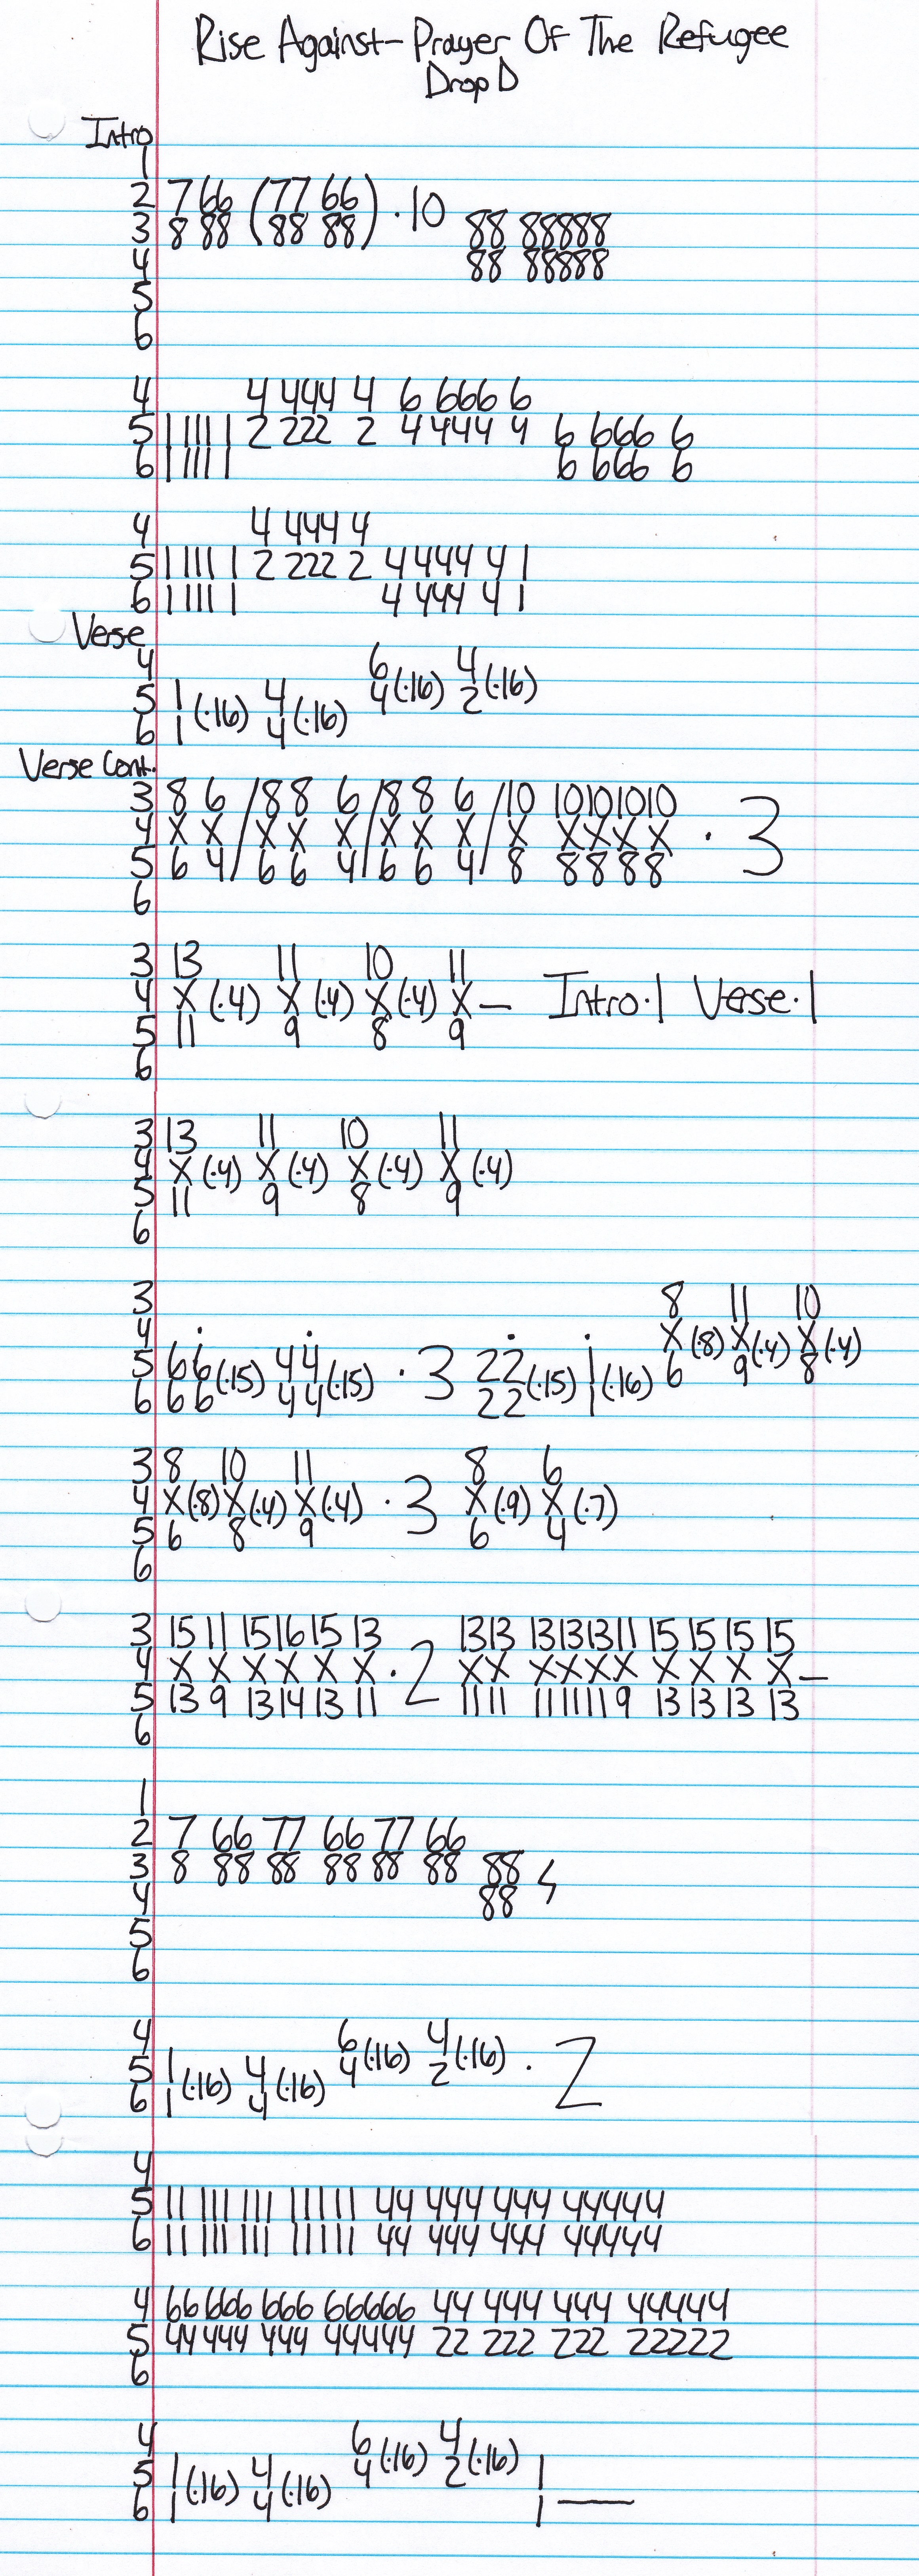 Rise Against- Prayer Of The Refugee
Drop D
Intro
1
2 7 66 (77 66) ·10
3 8 88 (88 88) 88 88888
4 88 88888
5
6
4 4 444 4 6 666 6
5 1 111 1 2 222 2 4 444 4 6 666 6
6 1 111 1 6 666 6
4 4 444 4
5 1 111 1 2 222 2 4 444 4 1
6 1 111 1 4 444 4 1
Verse
4 6 4
5 1 (·16) 4 (·16) 4 (·16) 2 (·16)
6 1 4
Verse Cont.
3 8 6 / 8 8 6 / 8 8 6 / 10 10101010
4 X X / X X X / X X X / X X X X X · 3
5 6 4 / 6 6 4 / 6 6 4 / 8 8 8 8 8
6
3 13 11 10 11
4 X (·4) X (·4) X (·4) X — Intro·1 Verse·1
5 11 9 8 9
6
3 13 11 10 11
4 X (·4) X (·4) X (·4) X (·4)
5 11 9 8 9
6
3 8 11 10
4 X (·8) X (·4) X (·4)
5 6 6 (·15) 4 4 (·15) · 3 2 2 (·15) 1 (·16) 6 9 8
6 6 6 4 4 2 2 1
3 8 10 11 8 6
4 X (·8) X (·4) X (·4) · 3 X (·9) X (·7)
5 6 8 9 6 4
6
3 15 11 15 16 15 13 1313 13131311 15 15 15 15
4 X X X X X X · 2 XX XXXX X X X X —
5 13 9 13 14 13 11 1111 1111119 13 13 13 13
6
1
2 7 66 77 66 77 66
3 8 88 88 88 88 88 88
4 88
5
6
4 6 4
5 1 (·16) 4 (·16) 4 (·16) 2 (·16) · 2
6 1 4
4
5 11 111 111 11111 44 444 444 44444
6 11 111 111 11111 44 444 444 44444
4 66 666 666 66666 44 444 444 44444
5 44 444 444 44444 22 222 222 22222
6
4 6 4
5 1 (·16) 4 (·16) 4 (·16) 2 (·16) 1
6 1 4 1 —